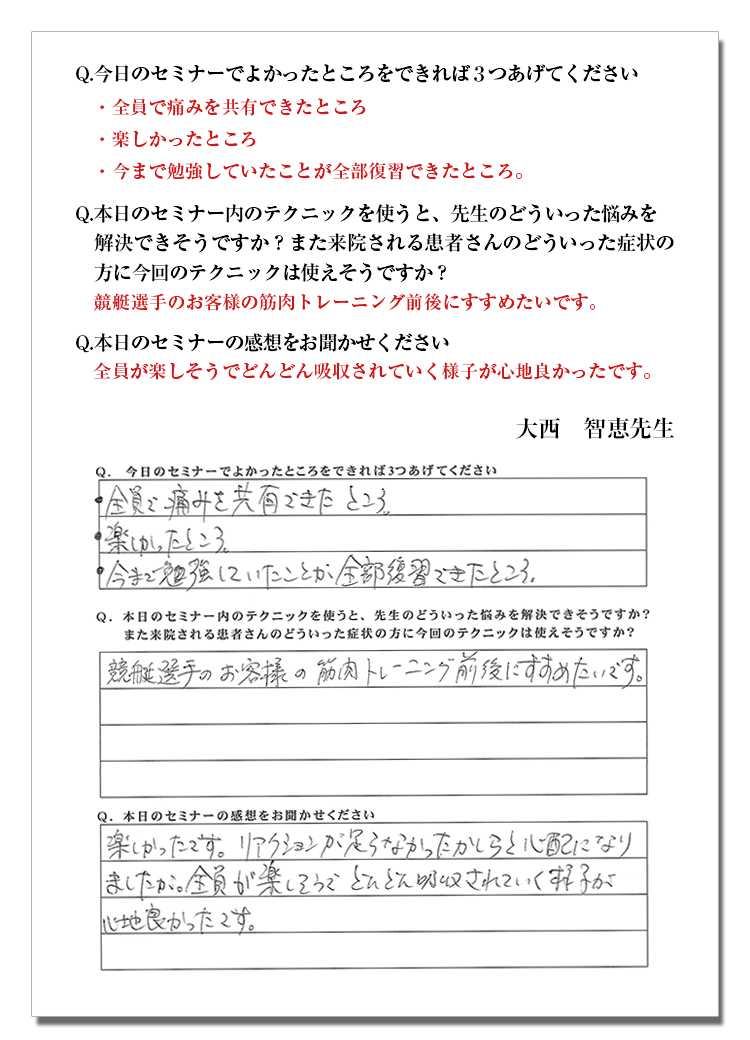 Q.今日のセミナーでよかったところをできれば３つあげてください
・全員で痛みを共有できたところ
・楽しかったところ
・今まで勉強していたことが全部復習できたところ。
Q.本日のセミナー内のテクニックを使うと、先生のどういった悩みを
解決できそうですか？また来院される患者さんのどういった症状の
方に今回のテクニックは使えそうですか？
競艇選手のお客様の筋肉トレーニング前後にすすめたいです。
Q.本日のセミナーの感想をお聞かせください
全員が楽しそうでどんどん吸収されていく様子が心地良かったです。
大西　智恵先生
Q. 今日のセミナーでよかったところをできれば3つあげてください
・全員で痛みを共有できたところ。
・楽しかったところ。
・今まで勉強していたことが、全部復習できたところ。
Q. 本日のセミナー内のテクニックを使うと、先生のどういった悩みを解決できそうですか？
また来院される患者さんのどういった症状の方に今回のテクニックは使えそうですか？
競艇選手のお客様の筋肉トレーニング前後にすすめたいです。
Q. 本日のセミナーの感想をお聞かせください
楽しかったです。リアクションが足らなかったかしらと心配になり
ましたが。全員が楽しそうでどんどん吸収されていく様子が
心地良かったです。